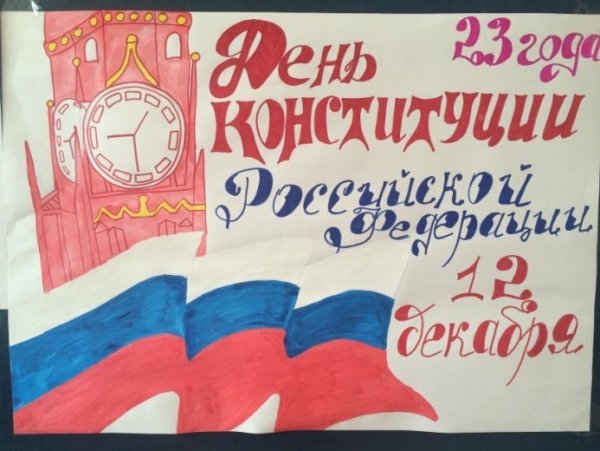 23 года
День
КОНСТИТУЦИИ
Российской
Федерации
12
декабря